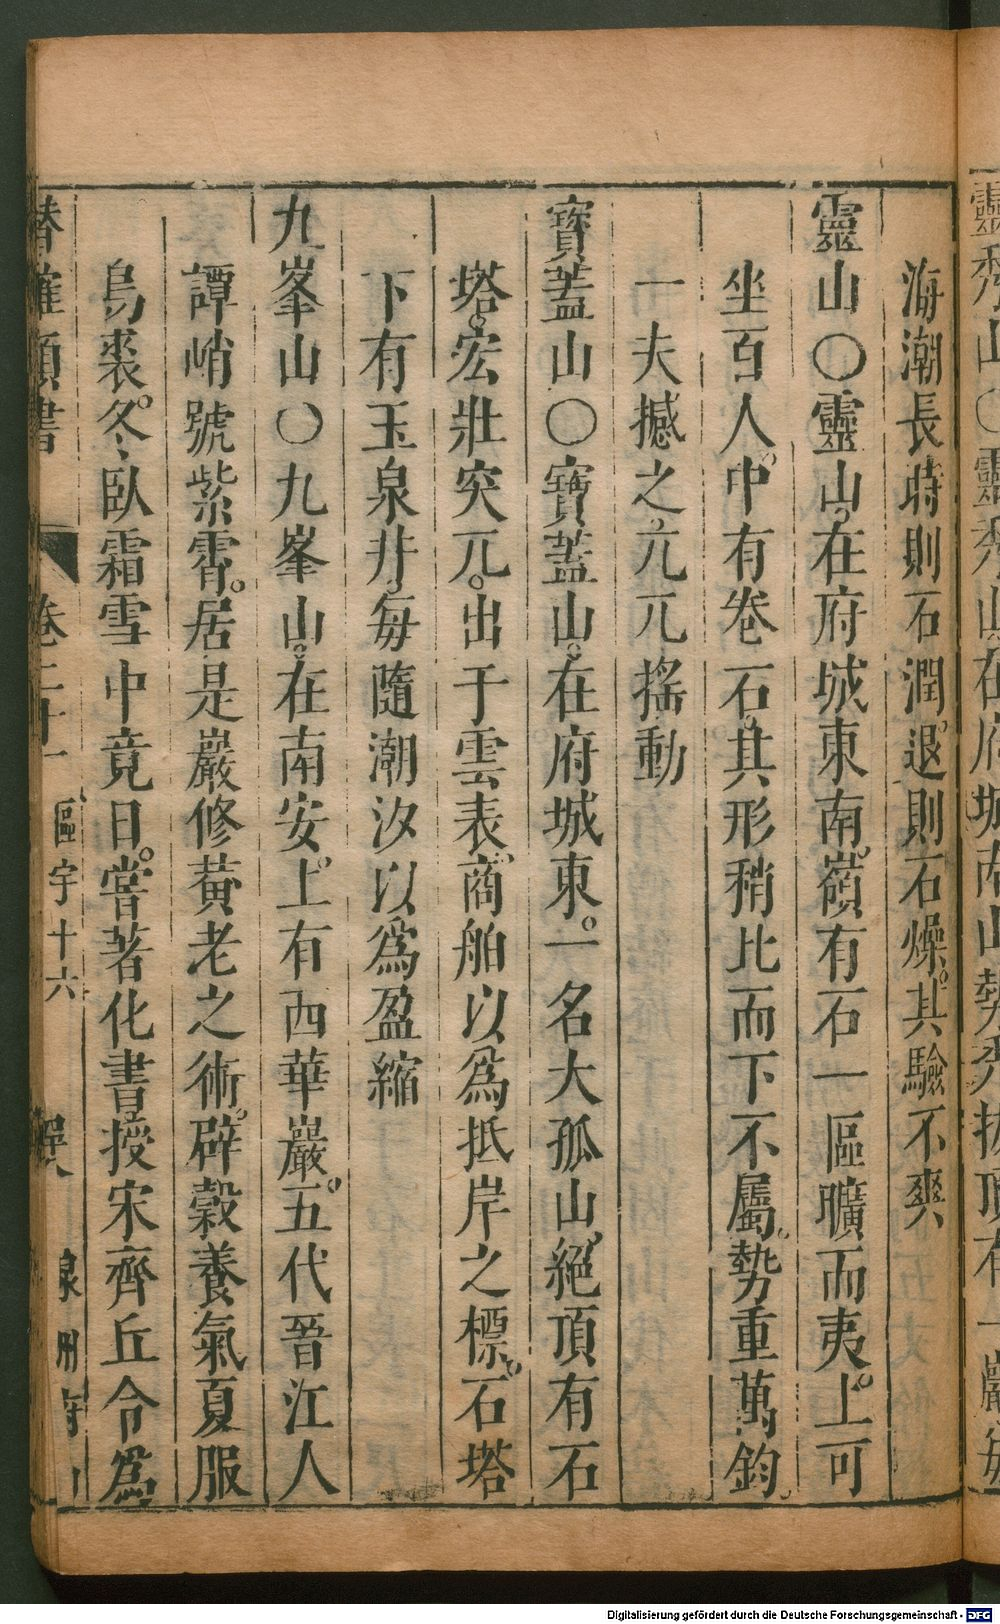 靈秀山〇靈秀山。在府城南。山勢秀拔。頂有一巖。每
海潮長時則石潤。退則石燥。其驗不爽
靈山〇靈山。在府城東南。嶺有石一區。曠而夷。上可
坐百人。中有卷石。其形稍比而下不屬。勢重萬鈞。
一夫撼之。亢兀搖動
寶蓋山〇寶蓋山。在府城東。一名大孤山。絕頂有石
塔。宏壯突兀。出于雲表。商舶以爲抵岸之標。石塔
下有玉泉井。每隨潮汐以爲盈縮
九峯山〇九峯山。在南安。上有西華巖。五代晉江人
譚峭號紫霄。居是巖修黃老之術。辟穀養氣。夏服
烏裘。冬臥霜雪中竟日。嘗著化書授宋齊丘令爲
潛確類書 卷二十一 區宇十六 泉州府 山
Digitalisierung gefördert durch die Deutsche Forschungsgemeinschaft - DFG